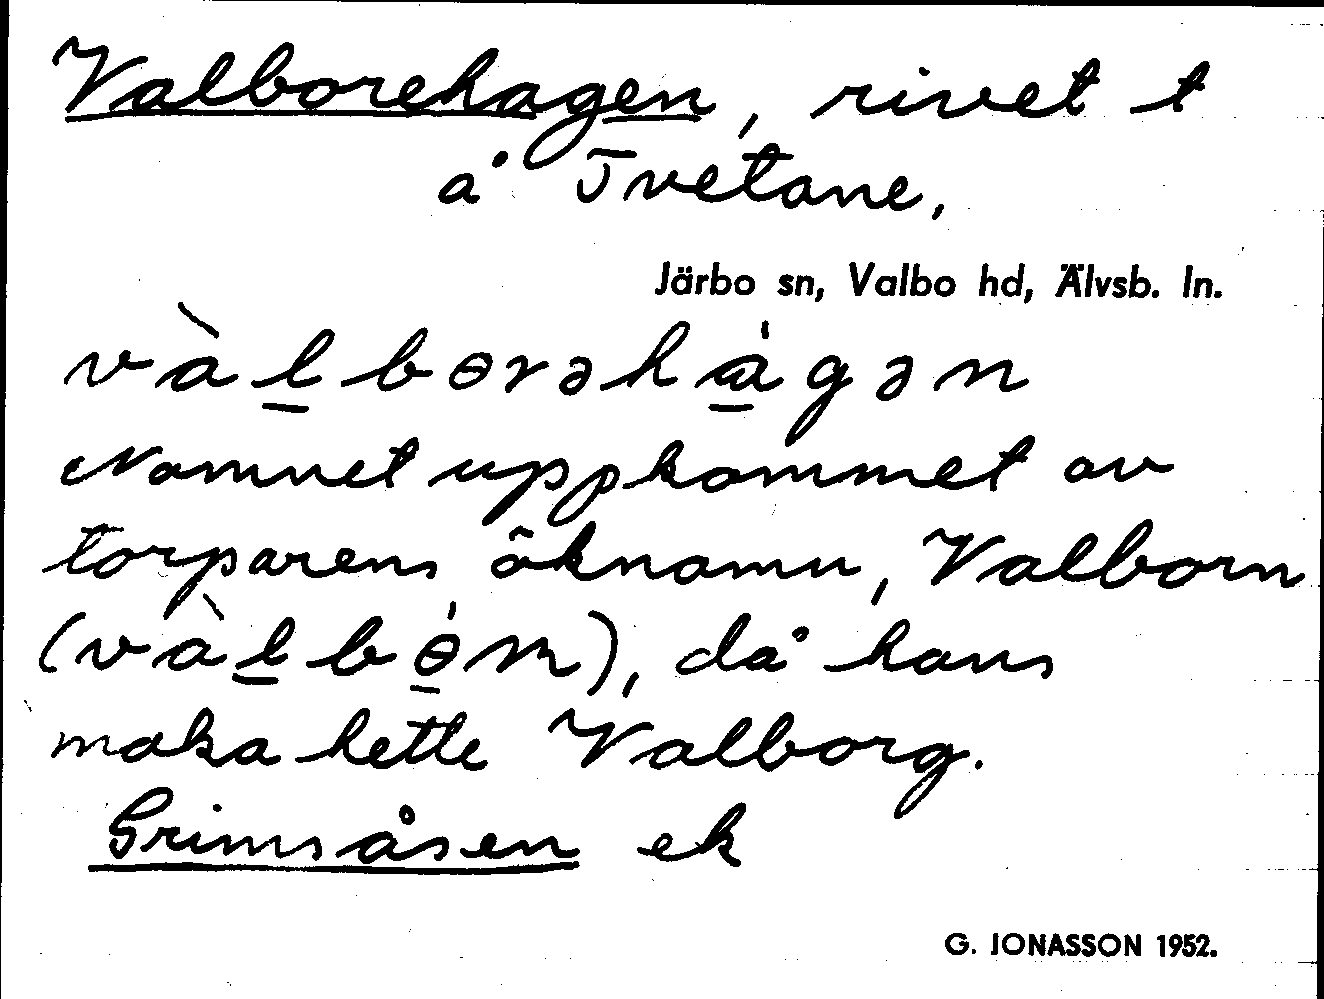 Valborehagen, rivet t
å Tvetane,
Järbo sn, Valbo hd, Älvsb. ln.
vàl̲bɵrəhá̲gən
Namnet uppkommet av
torparens öknamn, Valborn
(vàl̲bɵ̲́n), då hans
maka hette Valborg.
Grimsåsen ek
G. JONASSON 1952.